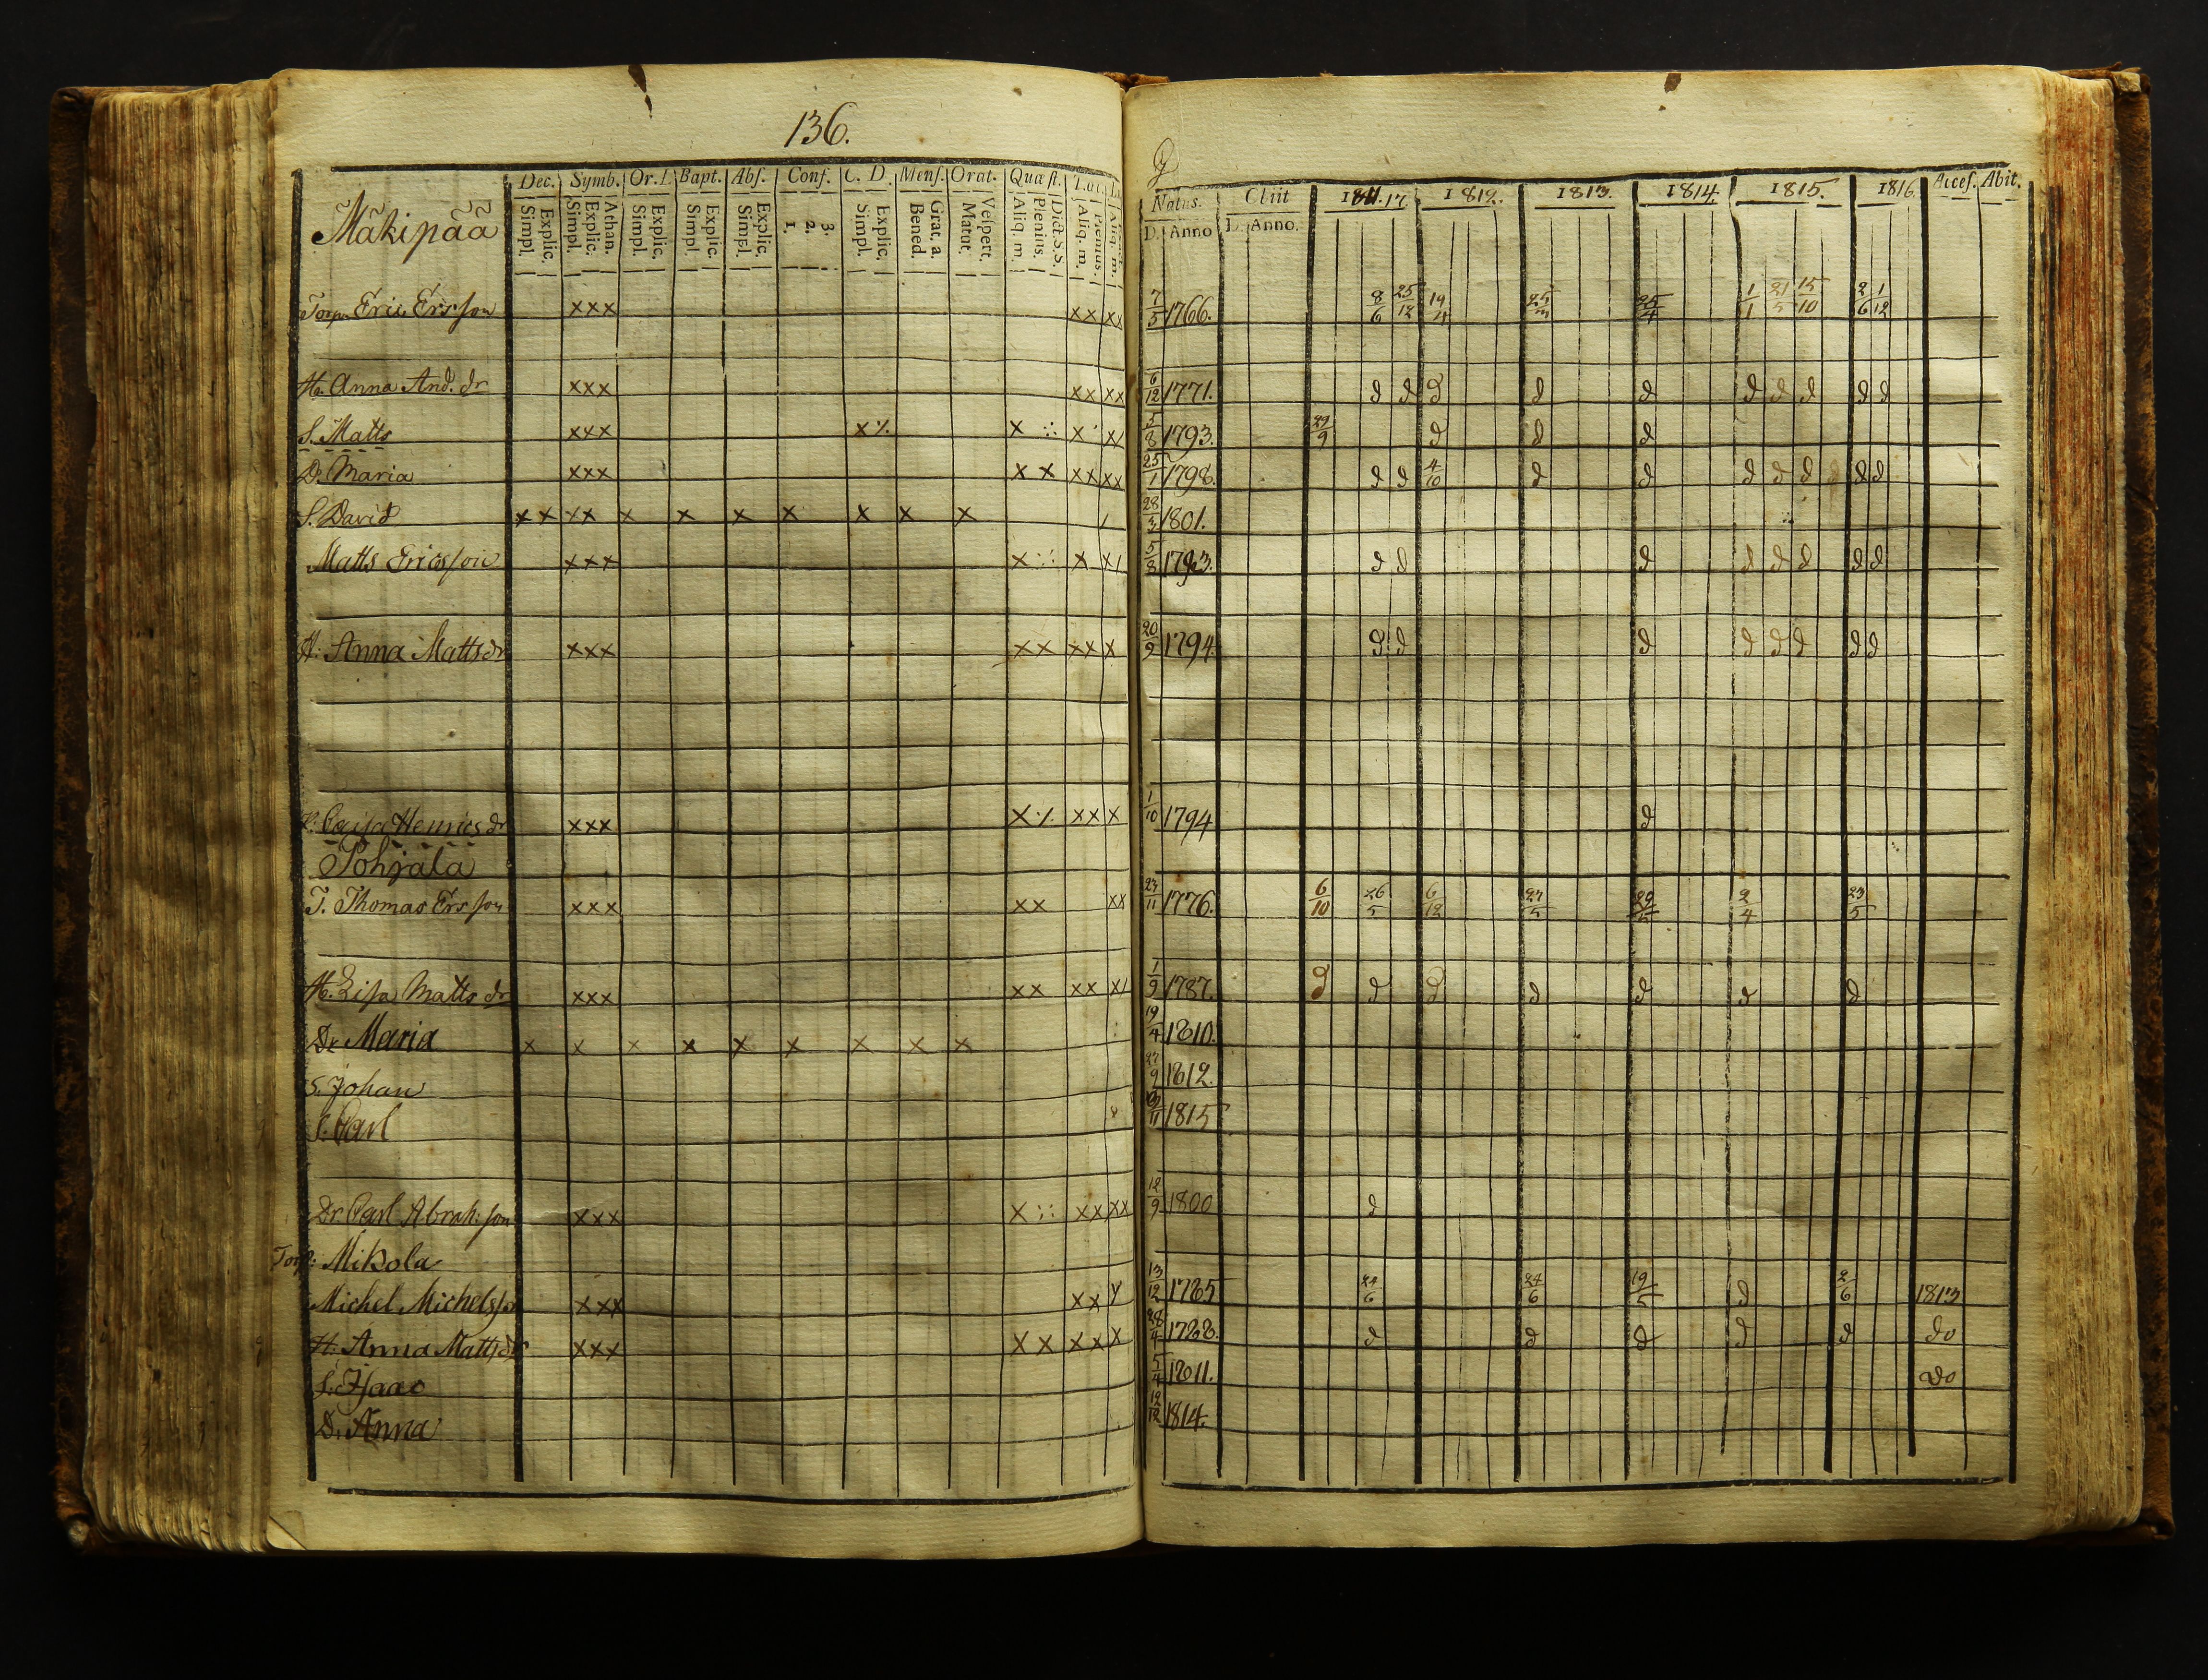 136.
Mäkipää Dec. Symb. Or. D. Bapt. Abs. Conf. C. D. Mens. Orat. Quæst.
Explic. Simpl. Athan. Explic. Simpl. Explic. Simpl. Explic. Simpl. Explic. Simpl. 3. 2. 1. Explic. Simpl. Grat. a. Bened. Vespert. Matut. Dict. S. S. Plenius. Aliq. m. Plenius. Aliq. m. Aliq. m.
Natus. Cliit 1811.17 1812. 1813. 1814. 1815. 1816. Acces. Abit.
D. Anno D. Anno.
Torp. Eric Ersson xxx xx xx 7/5 1766. 8/6 25/12 19/4 25/4 1/1 21/5 15/10 2/6 1/12
H. Anna And. dr xxx xx xx 6/12 1771. d d d d d d d d d d
S. Matts xxx x % x x 5/8 1793. 29/9 d d d
D. Maria xxx x x xx xx 25/1 1798. d d 4/10 d d d d d d d
S. David x x xx x x x x x x x 28/3 1801.
Matts Ericsson xxx x x 5/8 1793. d d d d d d d d
H: Anna Mattsdr xxx xx xx x 20/9 1794 d d d d d d d d
Caisa Henricsdr xxx x % xx x 1/10 1794 d
Pohjala
T. Thomas Ersson xxx xx xx 23/11 1776. 6/10 26/5 6/12 27/5 29/5 2/4 23/5
H. Lisa Matts dr xxx xx xx 1/9 1787. d d d d d d d
Dr Maria x x x x x x x x x 19/4 1810.
S. Johan 27/9 1812.
S. Carl 1815
Dr. Carl Abrah: son xxx x :: xx xx 12/9 1800 d
Torp: Mikola
Michel Michelsson xxx xx 13/12 1785 24/6 24/6 19/5 d 2/6 1813
H: Anna Mattsdr xxx x x xx x 28/4 1788. d d d d d do
S. Isaac 5/4 1811. do
D. Anna 12/12 1814.